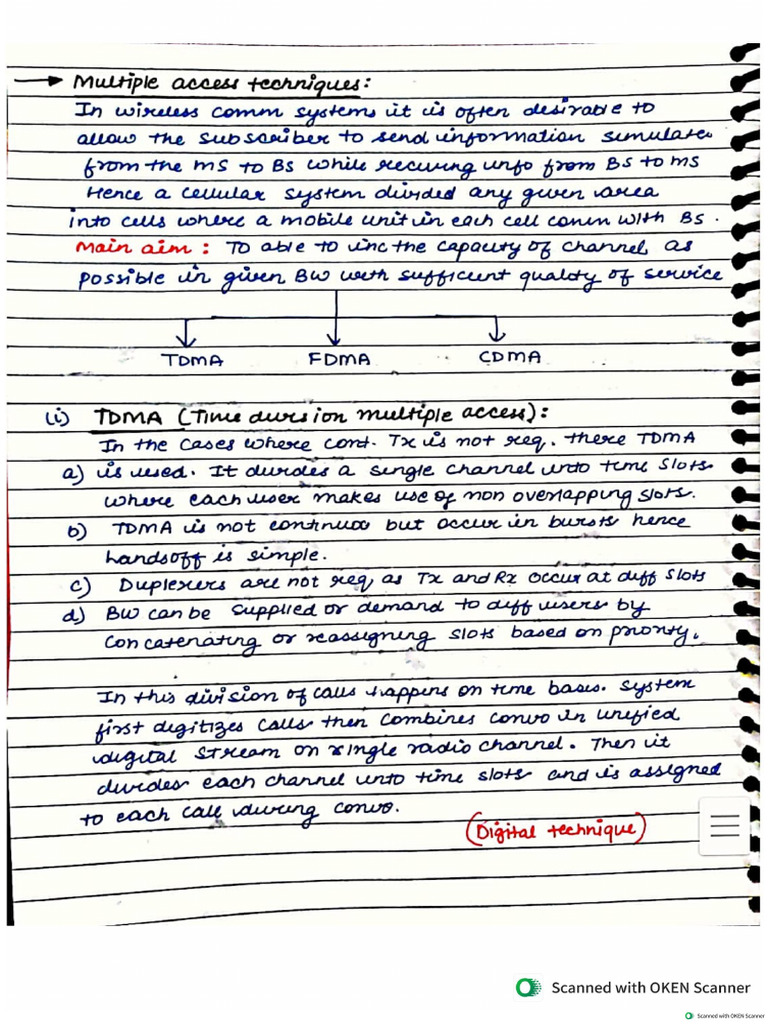 → Multiple access techniques:
In wireless comm systems it is often desirable to
allow the subscriber to send information simulate
from the MS to BS while recieving info from BS to MS
Hence a cellular system divided any given area
into cells where a mobile unit in each cell comm with BS.
Main aim: To able to inc the capacity of channel as
possible in given BW with sufficient quality of service
TDMA FDMA CDMA
(i) TDMA (Time division multiple access):
In the cases where cont. Tx is not req. there TDMA
a) is used. It divides a single channel into time slots
where each user makes use of non overlapping slots.
b) TDMA is not continuos but occur in bursts hence
handsoff is simple.
c) Duplexers are not req as Tx and Rx occur at diff slots
d) BW can be supplied or demand to diff users by
concatenating or reassigning slots based on priority.
In this division of calls happens on time basis. System
first digitizes calls then combines convo in unified
digital stream on single radio channel. Then it
divides each channel into time slots and is assigned
to each call during convo.
(Digital technique)
Scanned with OKEN Scanner
Scanned with OKEN Scanner